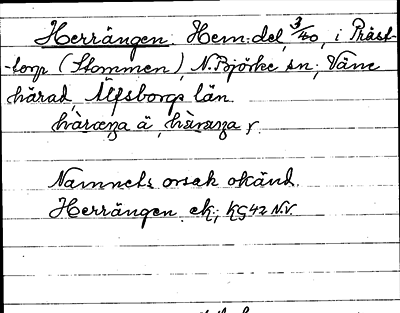 Herrängen. Hem:del, 3/40, i Präst-
-torp (Stommen), N. Björke sn; Väne
härad, Älfsborgs län.
hàrœŋa ä, hàrœŋa y.
Namnets orsak okänd.
Herrängen ek.; KG42 N.V.